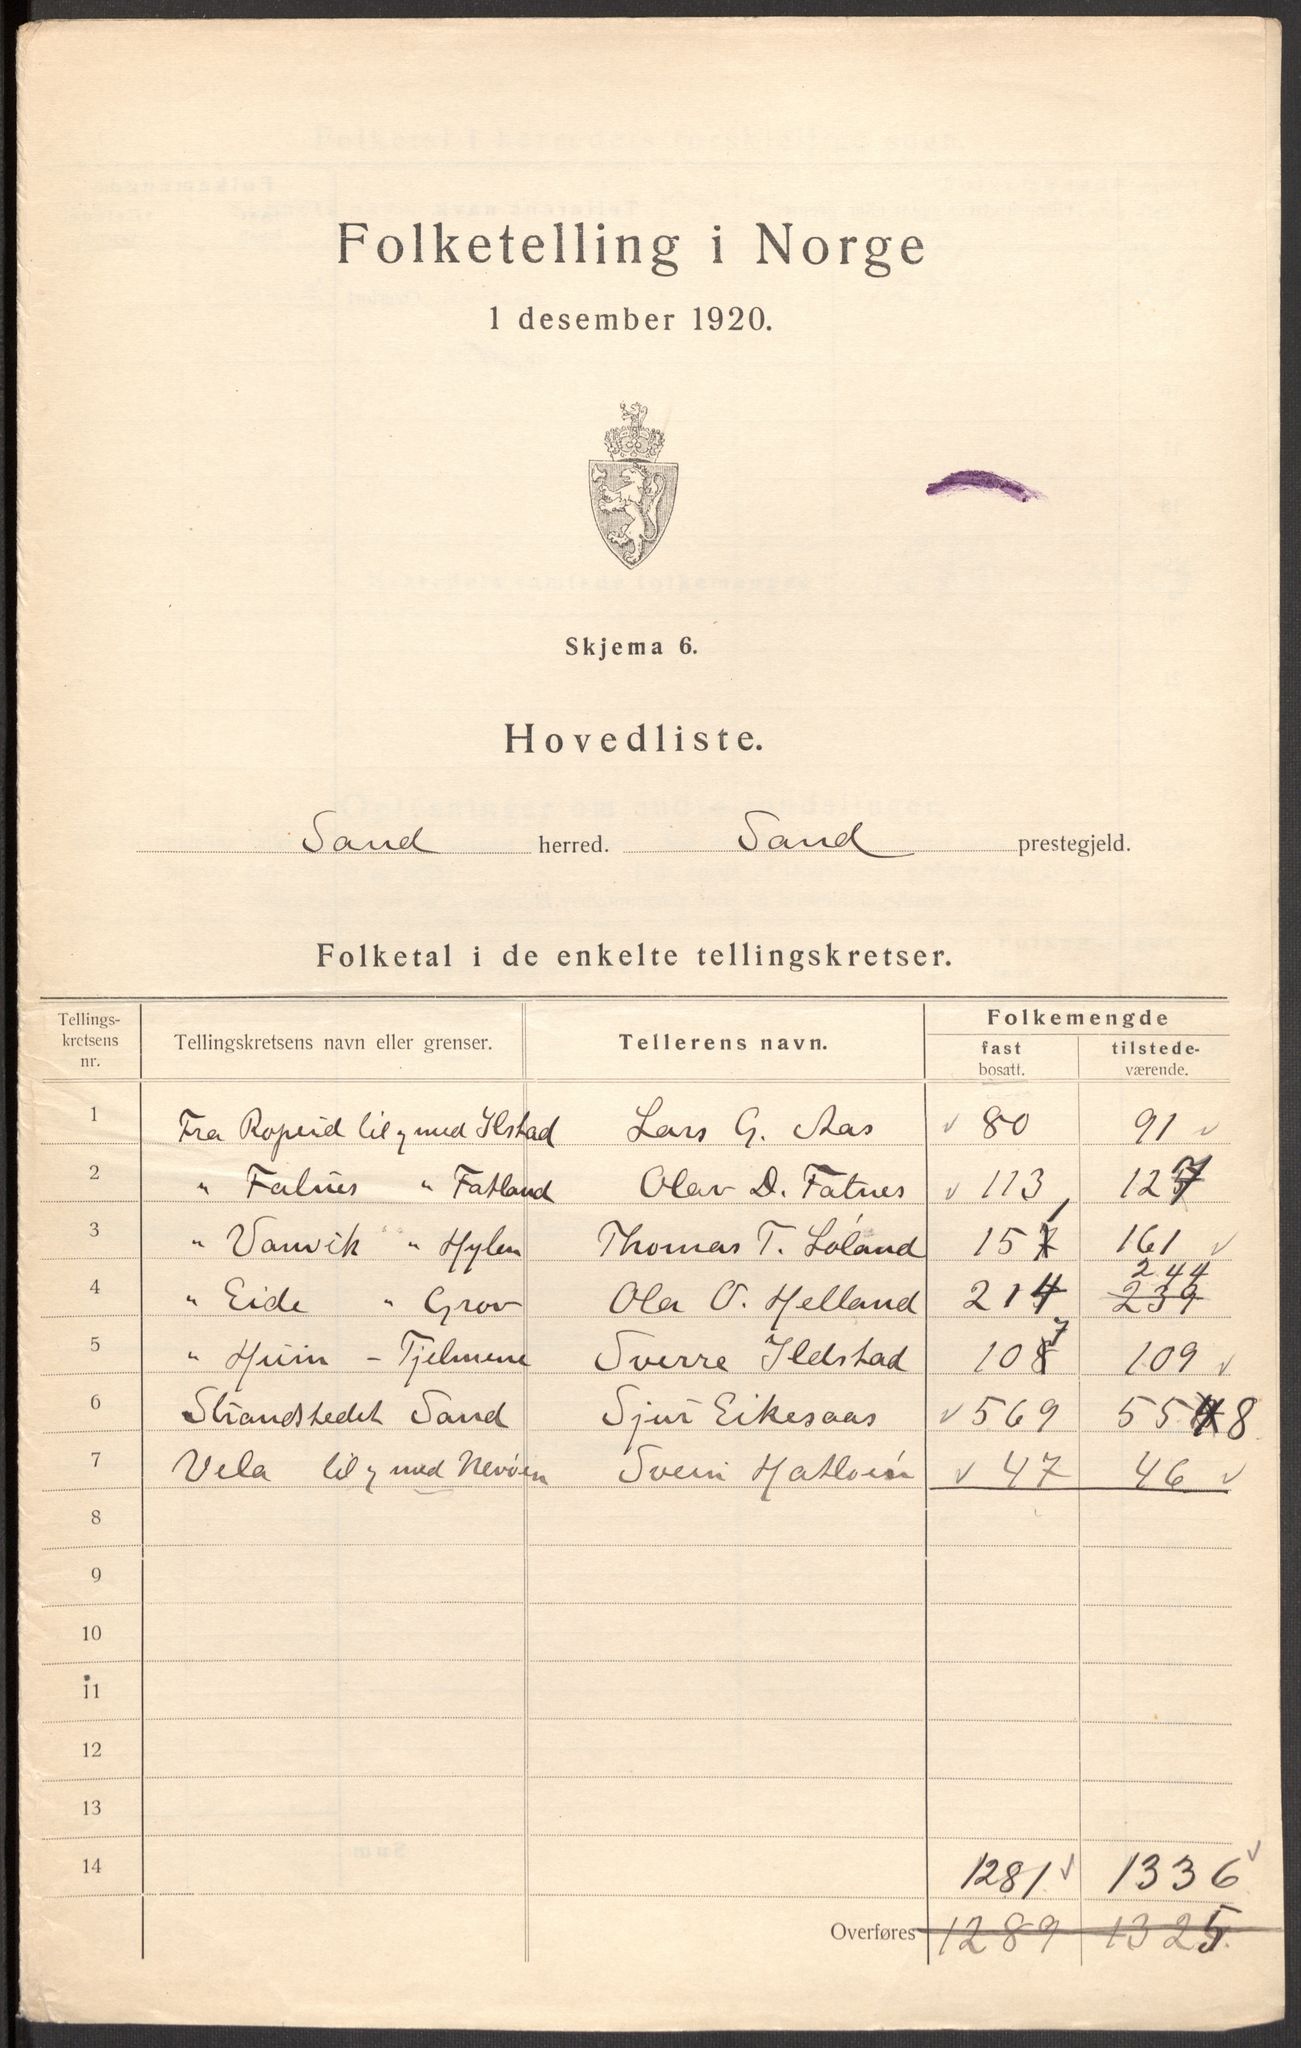 Folketelling i Norge
1 desember 1920.
Skjema 6.
Hovedliste.
Sand herred. Sand prestegjeld.
Folketal i de enkelte tellingskretser.
Tellings-
kretsens
nr.
Tellingskretsens navn eller grenser.
Tellerens navn.
Folkemengde
fast
bosatt.
tilstede-
værende.
1 Fra Ropeid til og med Ilstad Lars G. Aas 80 91
2 " Fatnes " Fatland Olav D. Fatnes 113 127
3 " Vanvik " Hylen Thomas T. Løland 151 161
4 " Eide " Grov Ola O. Helland 214 239 244
5 " Hiim - Tjelmene Sverre Ildstad 107 109
6 Strandstedet Sand Sjur Eikesaas 569 558
7 Vela til og med Nevøen Svein Hatløin 47 46
8
9
10
11
12
13
14 1281 1336
Overføres 1289 1325